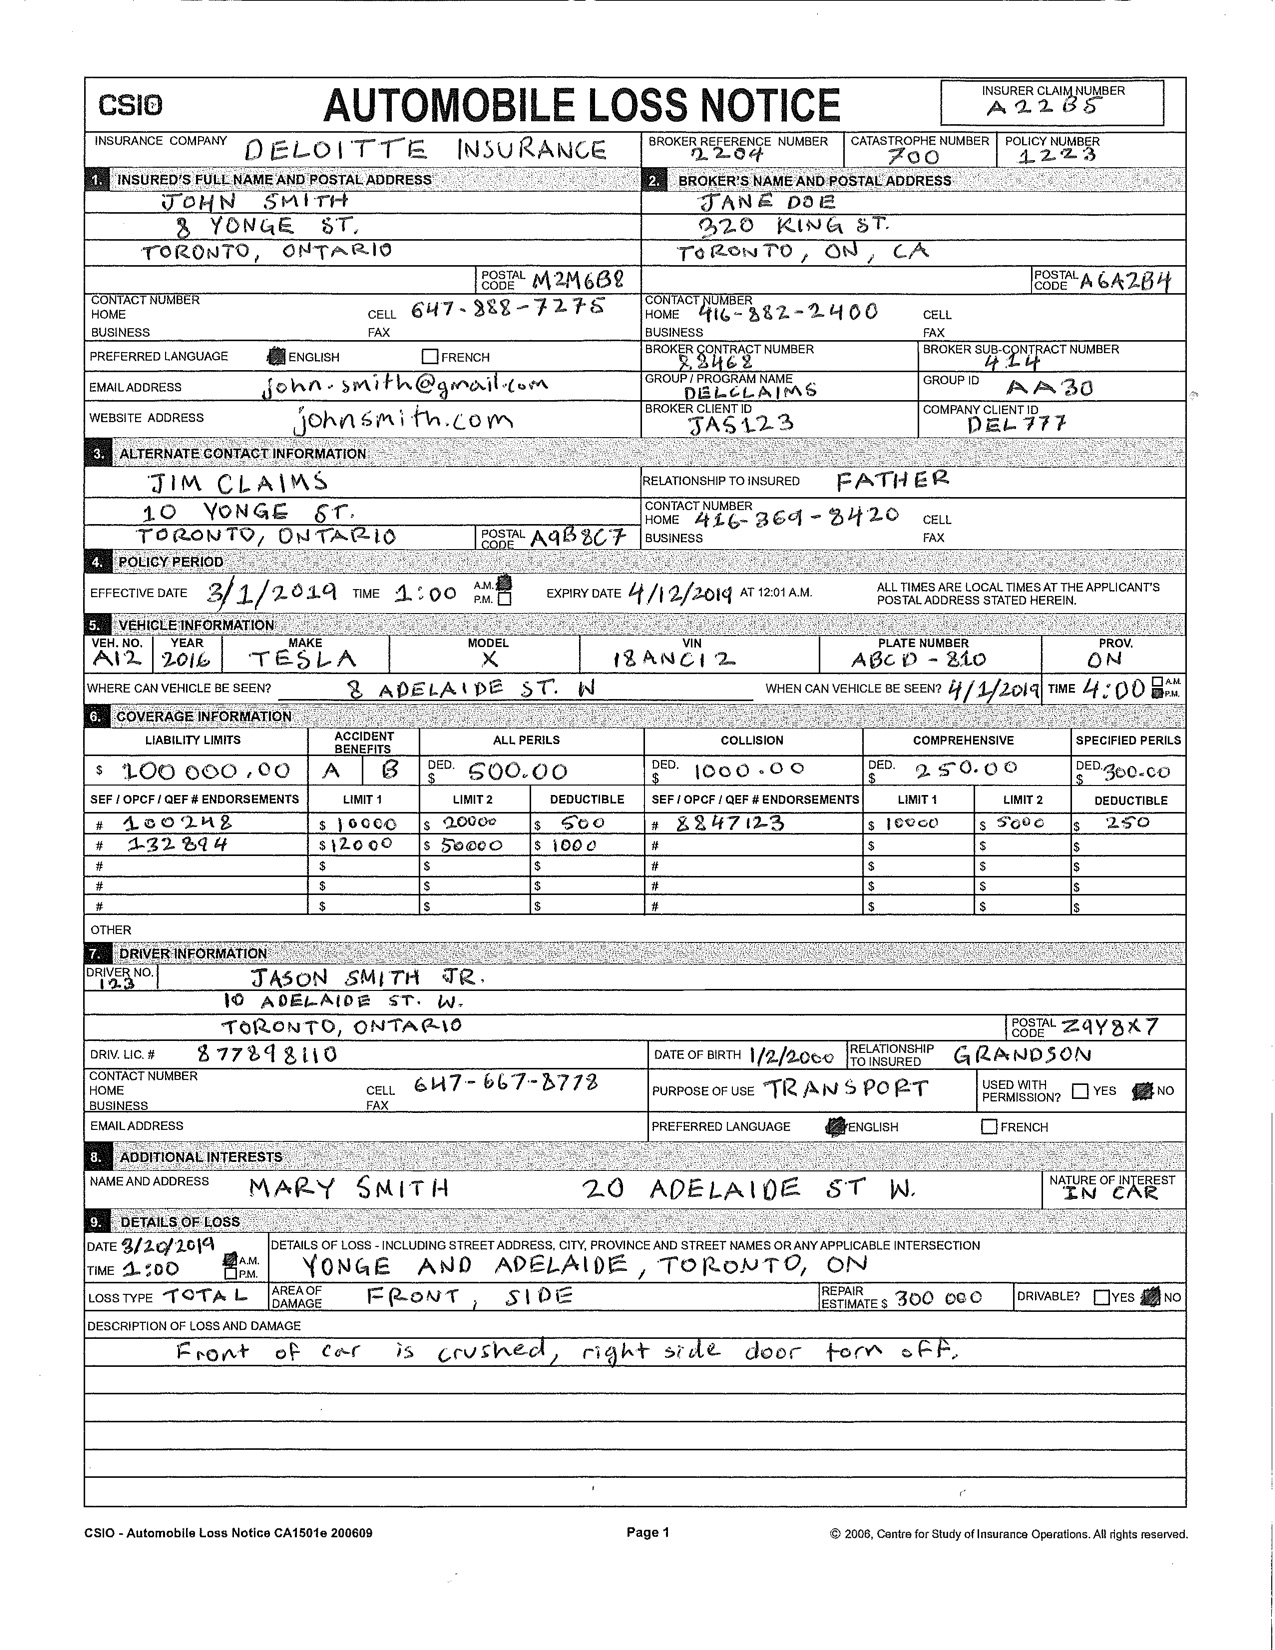 CSIO
AUTOMOBILE LOSS NOTICE
INSURER CLAIM NUMBER
A22B5
INSURANCE COMPANY DELOITTE INSURANCE
BROKER REFERENCE NUMBER
2204
CATASTROPHE NUMBER
700
POLICY NUMBER
1223
1. INSURED'S FULL NAME AND POSTAL ADDRESS
JOHN SMITH
8 YONGE ST.
TORONTO, ONTARIO
POSTAL CODE M2M6B8
CONTACT NUMBER
HOME CELL 647-888-7275
BUSINESS FAX
PREFERRED LANGUAGE ENGLISH FRENCH
EMAIL ADDRESS john.smith@gmail.com
WEBSITE ADDRESS johnsmith.com
2. BROKER'S NAME AND POSTAL ADDRESS
JANE DOE
320 KING ST.
TORONTO, ON, CA
POSTAL CODE A6A2B4
CONTACT NUMBER
HOME 416-882-2400 CELL
BUSINESS FAX
BROKER CONTRACT NUMBER
88468
BROKER SUB-CONTRACT NUMBER
414
GROUP / PROGRAM NAME
DELCLAIMS
GROUP ID AA30
BROKER CLIENT ID
JAS123
COMPANY CLIENT ID
DEL777
3. ALTERNATE CONTACT INFORMATION
JIM CLAIMS
10 YONGE ST.
TORONTO, ONTARIO
POSTAL CODE A9B8C7
RELATIONSHIP TO INSURED FATHER
CONTACT NUMBER
HOME 416-369-8420 CELL
BUSINESS FAX
4. POLICY PERIOD
EFFECTIVE DATE 3/1/2019 TIME 1:00 A.M. P.M. EXPIRY DATE 4/12/2019 AT 12:01 A.M.
ALL TIMES ARE LOCAL TIMES AT THE APPLICANT'S
POSTAL ADDRESS STATED HEREIN.
5. VEHICLE INFORMATION
VEH. NO. YEAR MAKE MODEL VIN PLATE NUMBER PROV.
A12 2016 TESLA X 18ANC12 ABCD-810 ON
WHERE CAN VEHICLE BE SEEN? 8 ADELAIDE ST. W WHEN CAN VEHICLE BE SEEN? 4/1/2019 TIME 4:00 A.M. P.M.
6. COVERAGE INFORMATION
LIABILITY LIMITS ACCIDENT BENEFITS ALL PERILS COLLISION COMPREHENSIVE SPECIFIED PERILS
$ 100 000.00 A B DED. $ 500.00 DED. $ 1000.00 DED. $ 250.00 DED. $ 300.00
SEF / OPCF / QEF # ENDORSEMENTS LIMIT 1 LIMIT 2 DEDUCTIBLE SEF / OPCF / QEF # ENDORSEMENTS LIMIT 1 LIMIT 2 DEDUCTIBLE
# 100248 $ 10000 $ 20000 $ 500 # 8847123 $ 10000 $ 5000 $ 250
# 132894 $ 12000 $ 50000 $ 1000 # $ $ $
# $ $ $ # $ $ $
# $ $ $ # $ $ $
# $ $ $ # $ $ $
OTHER
7. DRIVER INFORMATION
DRIVER NO.
123
JASON SMITH JR.
10 ADELAIDE ST. W.
TORONTO, ONTARIO
POSTAL CODE Z9Y8X7
DRIV. LIC. # 877898110 DATE OF BIRTH 1/2/2000 RELATIONSHIP TO INSURED GRANDSON
CONTACT NUMBER
HOME CELL 647-667-8778
BUSINESS FAX
PURPOSE OF USE TRANSPORT USED WITH PERMISSION? YES NO
EMAIL ADDRESS PREFERRED LANGUAGE ENGLISH FRENCH
8. ADDITIONAL INTERESTS
NAME AND ADDRESS MARY SMITH 20 ADELAIDE ST W.
NATURE OF INTEREST
IN CAR
9. DETAILS OF LOSS
DATE 3/20/2019
TIME 1:00 A.M. P.M.
DETAILS OF LOSS - INCLUDING STREET ADDRESS, CITY, PROVINCE AND STREET NAMES OR ANY APPLICABLE INTERSECTION
YONGE AND ADELAIDE, TORONTO, ON
LOSS TYPE TOTAL AREA OF DAMAGE FRONT, SIDE REPAIR ESTIMATE $ 300 000 DRIVABLE? YES NO
DESCRIPTION OF LOSS AND DAMAGE
Front of car is crushed, right side door torn off.
CSIO - Automobile Loss Notice CA1501e 200609
Page 1
© 2006, Centre for Study of Insurance Operations. All rights reserved.